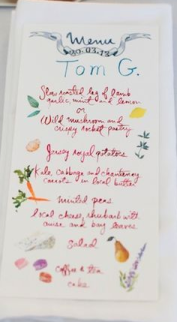 Menu
20.03.12
Tom G.
Slow roasted leg of lamb
garlic, mint and lemon
or
Wild mushroom and
crispy rocket pastry
Jersey royal potatoes
Kale, cabbage and chantenay
carrots in local butter
minted peas
local cheese, rhubarb with
and bay leaves
Salad
coffee & tea
cake